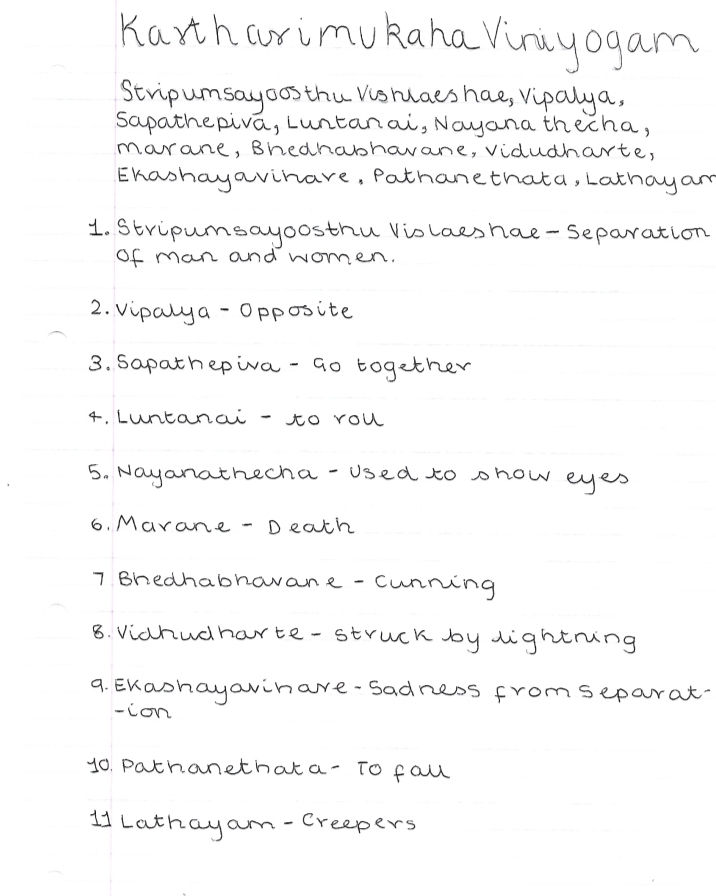 Kartharimukaha Viniyogam
Stripumsayoosthu Vishlaeshae, Vipalya,
Sapathepiva, Luntanai, Nayana thecha,
marane, Bhedhabhavane, Vidudharte,
Ekashayavihare, Pathanethata, Lathayam
1. Stripumsayoosthu Vislaeshae - Separation
of man and women.
2. Vipalya - Opposite
3. Sapathepiva - Go together
4. Luntanai - to roll
5. Nayanathecha - Used to show eyes
6. Marane - Death
7 Bhedhabhavane - Cunning
8. Vidhudharte - struck by lightning
9. Ekashayavihare - Sadness from separat-
-ion
10. Pathanethata - To fall
11 Lathayam - Creepers